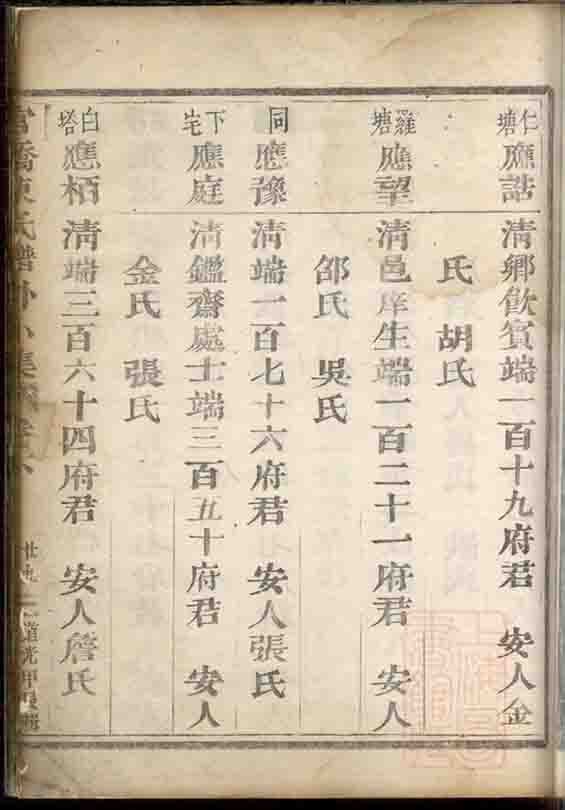 仁塘 應誥 清鄉飲賓端一百十九府君 安人金
氏 胡氏
羅塘 應望 清邑庠生端一百二十一府君 安人
邵氏 吳氏
同 應豫 清端一百七十六府君 安人張氏
下宅 應庭 清鑑齋處士端三百五十府君 安人
金氏 張氏
白塔 應栢 清端三百六十四府君 安人詹氏
橋 氏譜 道光甲